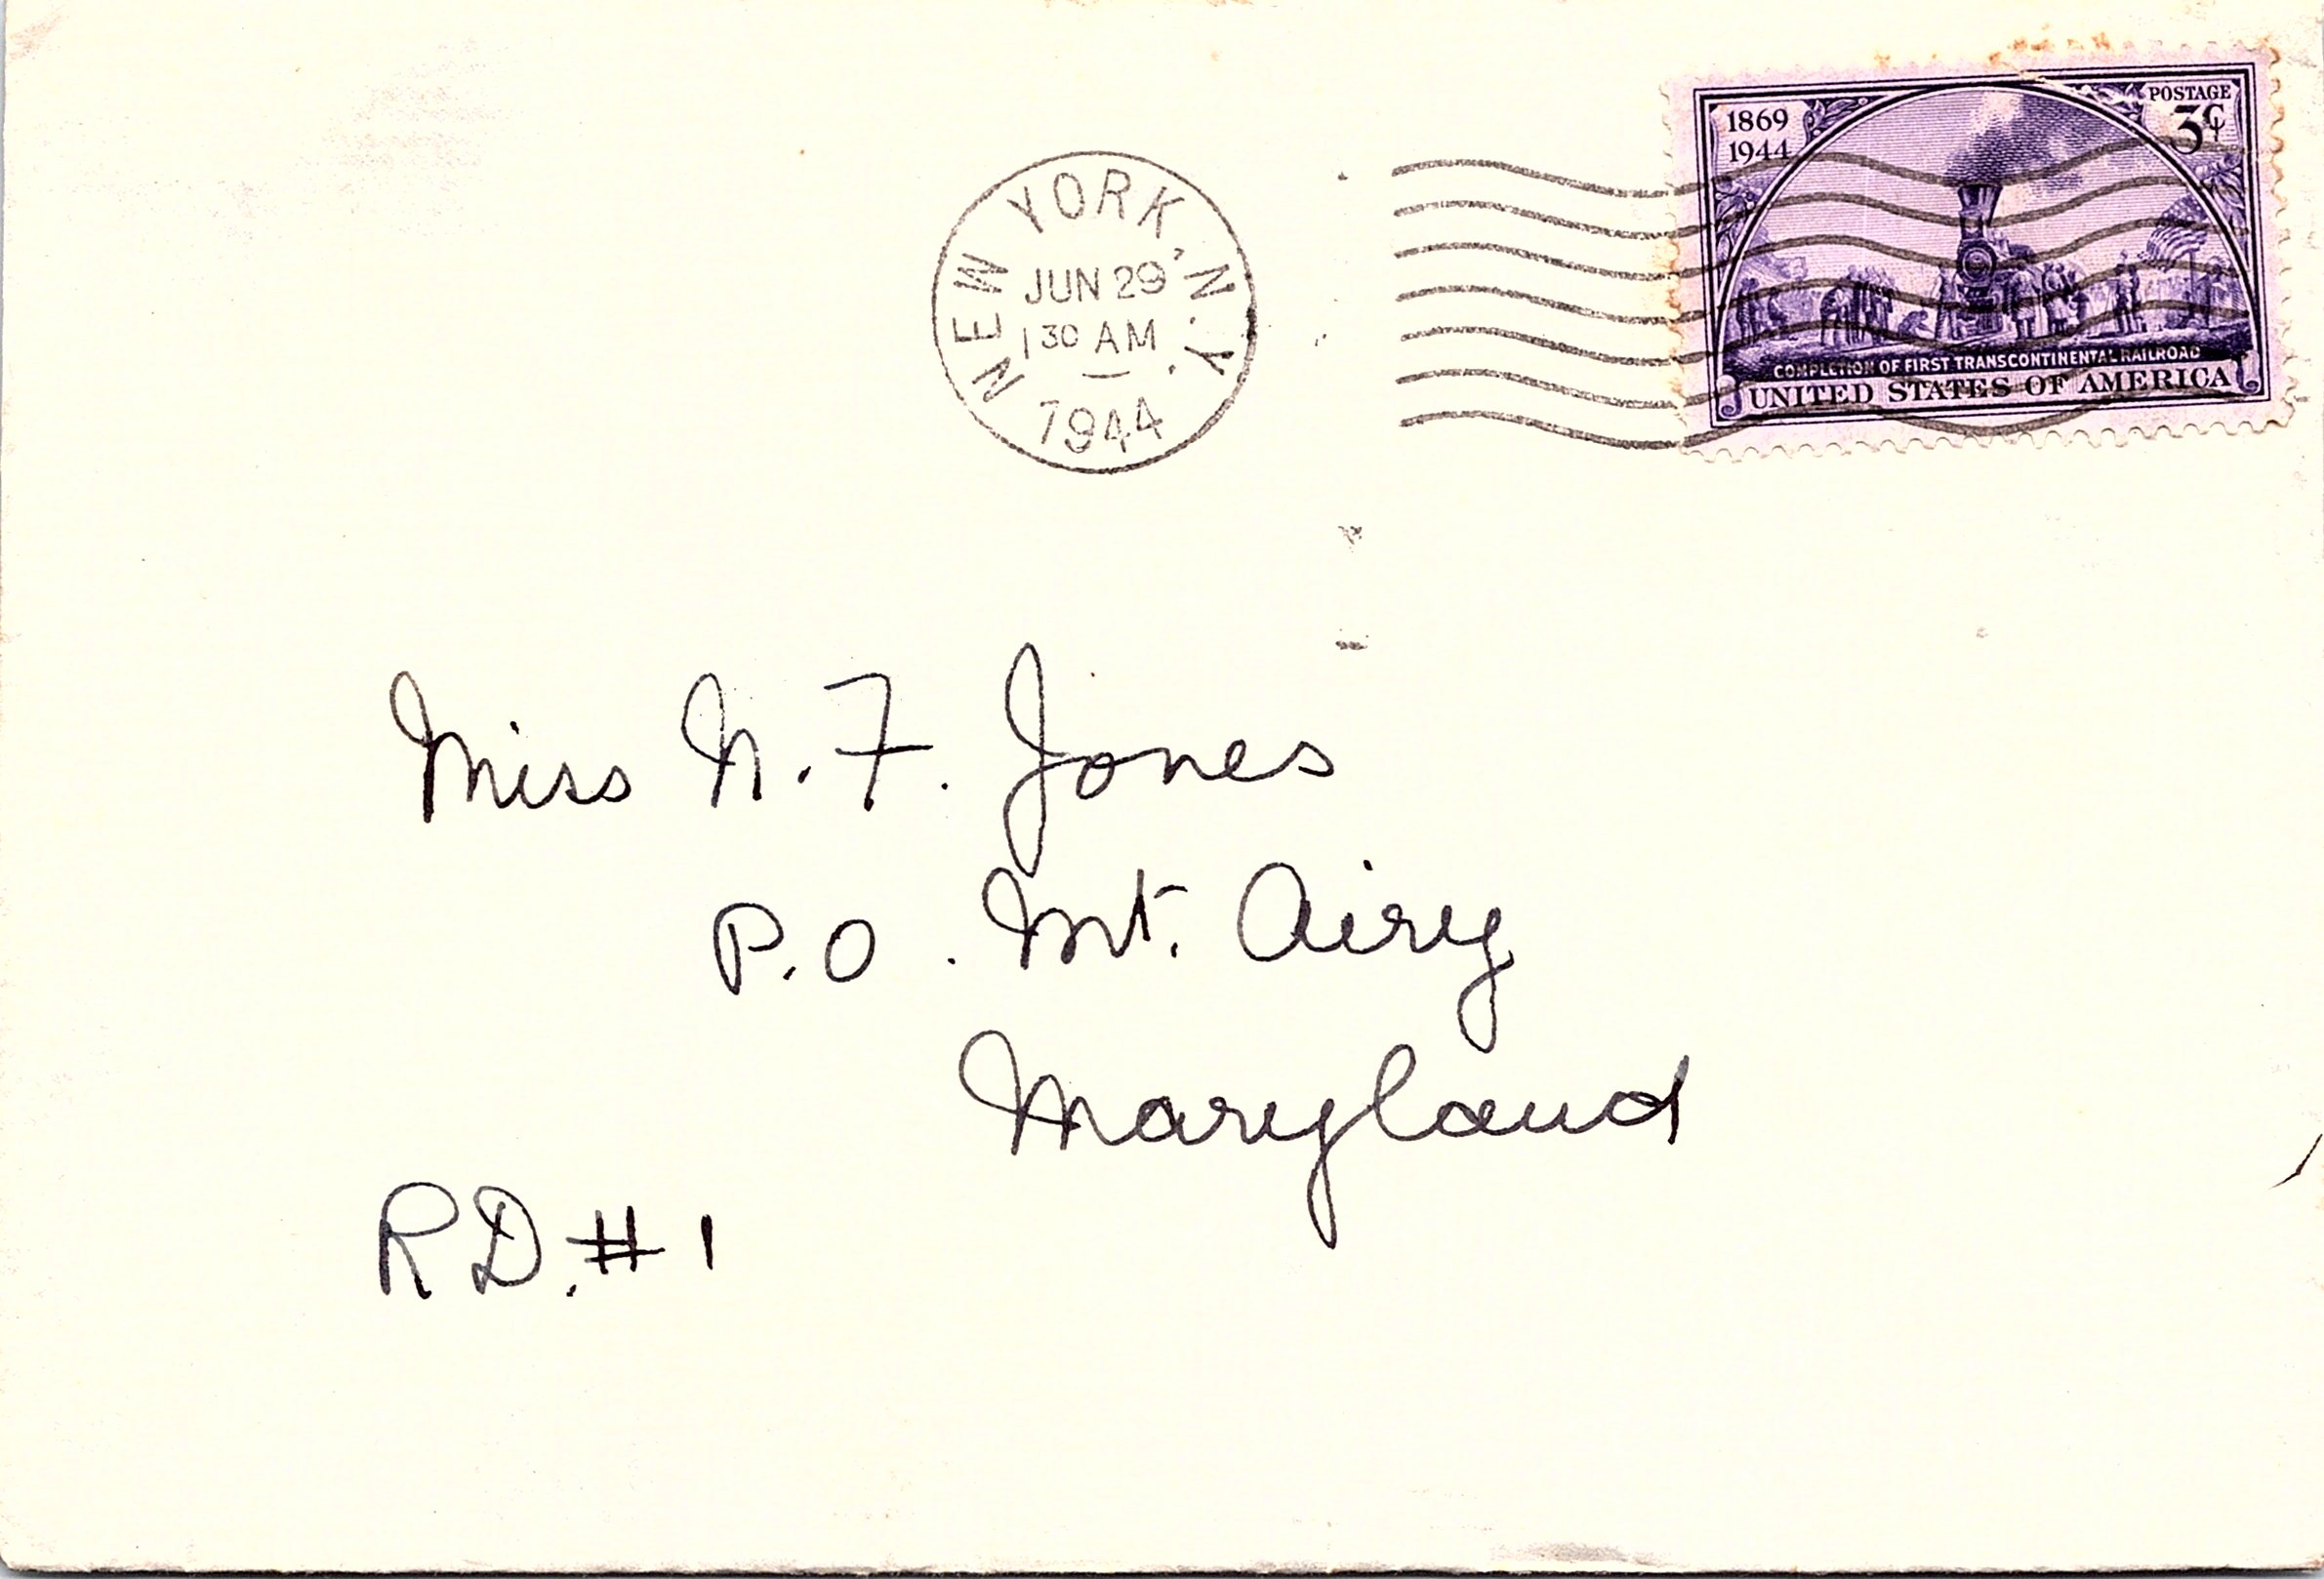 1869
1944
POSTAGE
3¢
COMPLETION OF FIRST TRANSCONTINENTAL RAILROAD
UNITED STATES OF AMERICA
NEW YORK, N.Y.
JUN 29
1 30 AM
1944
Miss N. F. Jones
P.O. Mt. Airy
Maryland
RD. #1